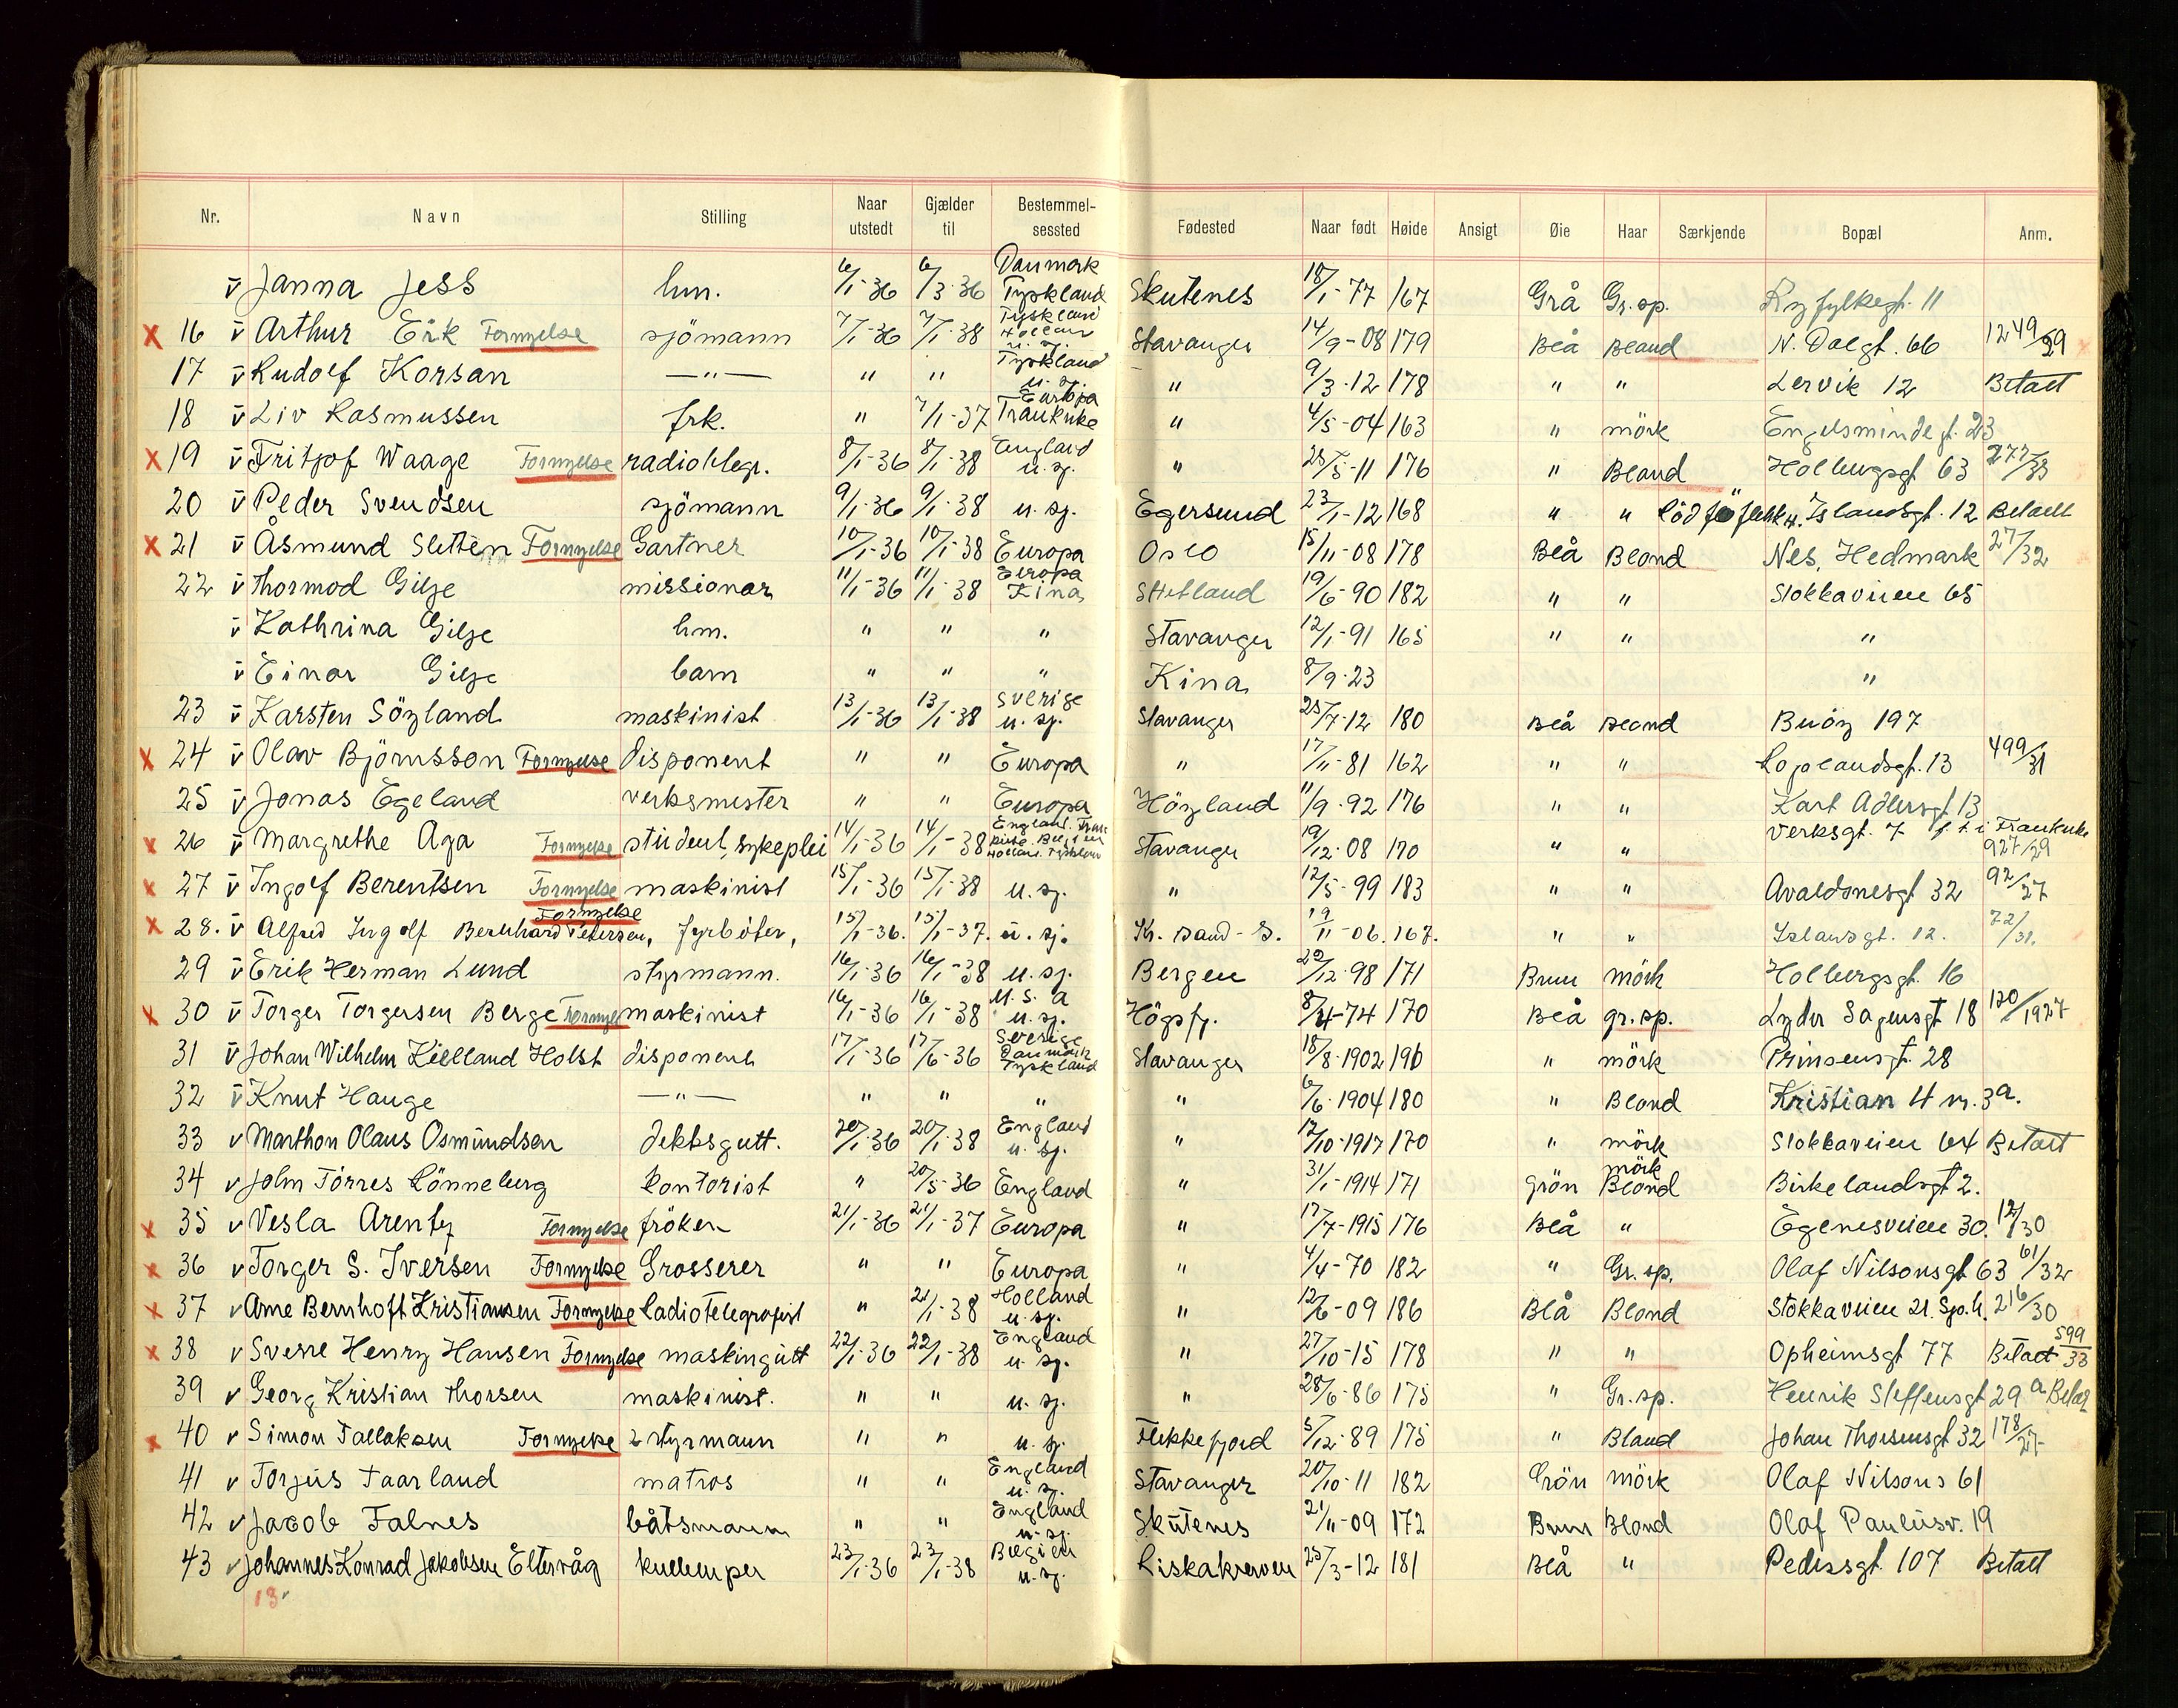 Nr. Navn Stilling Naar utstedt Gjælder til Bestemmelsessted Fødested Naar født Høide Ansigt Øie Haar Særkjende Bopæl Anm.
v Janna Jess hm. 6/1-36 6/3-36 Danmark Tyskland Skutenes 18/1-77 167 Grå Gr.sp. Ryfylkegt. 11
x 16 v Arthur Erk Fornyelse sjömann 7/1-36 7/1-38 Tyskland Holland u. sj. Stavanger 14/9-08 179 Blå Blond N. Dalgt. 66 1249/29
17 v Rudolf Korsan —"— " " Tyskland u. sj. " 9/3-12 178 " " Lervik 12 Betalt
18 v Liv Rasmussen frk. " 7/1-37 Europa Frankrike " 4/5-04 163 " mörk Engelsmindegt. 23
x 19 v Fritjof Waage Fornyelse radiotelegr. 8/1-36 8/1-38 England u. sj. " 25/5-11 176 " Blond Holbergsgt 63 277/33
20 v Peder Svendsen sjömann 9/1-36 9/1-38 u. sj. Egersund 23/1-12 168 " " Islandsgt. 12 Betalt
x 21 v Åsmund Sletten Fornyelse Gartner 10/1-36 10/1-38 Europa Oslo 15/11-08 178 Blå Blond Nes, Hedmark 27/32
22 v Thormod Gilje missionær 11/1-36 11/1-38 Europa Kina Stetland 19/6-90 182 " " Stokkaveien 65
v Kathrina Gilje hm. " " " Stavanger 12/1-91 165 " " "
v Einar Gilje barn " " " Kina 8/9-23 "
23 v Karsten Söyland maskinist 13/1-36 13/1-38 Sverige u. sj. Stavanger 25/7-12 180 Blå Blond Buöy 197
x 24 v Olav Björnsson Fornyelse disponent " " Europa " 17/11-81 162 " " Roplandsgt. 13 499/31
25 v Jonas Egeland verksmester " " Europa Höyland 11/9-92 176 " " Kort Adlersgt 13
x 26 v Margrethe Aga Fornyelse student, sykeplei 14/1-36 14/1-38 England. Frankrike. Belgien Holland. Tyskland Stavanger 19/12-08 170 " " Verksgt. 7 f. t. i Frankrike 927/29
x 27 v Ingolf Berentsen Fornyelse maskinist 15/1-36 15/1-38 u. sj. " 12/5-99 183 " " Avaldsnesgt 32 92/27
x 28. v Alfred Ingolf Bernhard Petersen, Fornyelse fyrböter, 15/1-36. 15/1-37. u. sj. Kr. sand - S. 19/11-06. 167. " " Islandsgt. 12. 72/31.
29 v Erik Herman Lund styrmann. 16/1-36 16/1-38 u. sj. Bergen 29/12-98 171 Brun mörk Holbergsgt. 16
x 30 v Torger Torgersen Berge Fornyel maskinist 16/1-36 16/1-38 U. S. A u. sj. Högsfj. 8/4-74 170 Blå gr.sp. Lyder Sagensgt 18 120/1927
31 v Johan Wilhelm Kielland Holst disponent 17/1-36 17/6-36 Sverige Danmark Tyskland Stavanger 18/8-1902 190 " mörk Prinsensgt. 28
32 v Knut Hauge —"— " " " " 6/6-1904 180 " Blond Kristian 4 nr. 3a.
33 v Marthon Olaus Osmundsen dekksgutt. 20/1-36 20/1-38 England u. sj. " 12/10-1917 170 " mörk Stokkaveien 64 Betalt
34 v John Törres Rönneberg kontorist " 20/5-36 England " 31/1-1914 171 grön mörk Blond Birkelandsgt 2.
x 35 v Vesla Arentz Fornyelse fröken 21/1-36 21/1-37 Europa " 17/7-1915 176 Blå " Egenesveien 30. 12/30
x 36 v Torger S. Iversen Fornyelse Grosserer " " Europa " 4/4-70 182 " Gr.sp. Olaf Nilsonsgt 63 61/32
x 37 v Arne Bernhoft Kristiansen Fornyelse Radiotelegrafist " 21/1-38 Holland u. sj. " 12/6-09 186 Blå Blond Stokkaveien 21. Sp.h. 216/30
x 38 v Sverre Henry Hansen Fornyelse maskingutt 22/1-36 22/1-38 England u. sj. " 27/10-15 178 " " Opheimsgt 77 Betalt 599/33
39 v Georg Kristian Thorsen maskinist. " " u. sj. " 28/6-86 175 " Gr.sp. Henrik Steffensgt 29a Betal
x 40 v Simon Tallaksen Fornyelse 2 styrmann " " u. sj. Flekkefjord 5/12-89 175 " Blond Johan Thorsensgt 32 178/27
41 v Torjus Taarland matros " " England u. sj. Stavanger 20/10-11 182 Grön mörk Olaf Nilsons 61
42 v Jacob Falnes båtsmann " " England u. sj. Skutenes 21/11-09 172 Brun Blond Olaf Paulusv. 19
43 v Johannes Konrad Jakobsen Eltervåg kullemper 23/1-36 23/1-38 Belgien u. sj. 25/3-12 181 Blå " Pedersgt. 107 Betalt
13